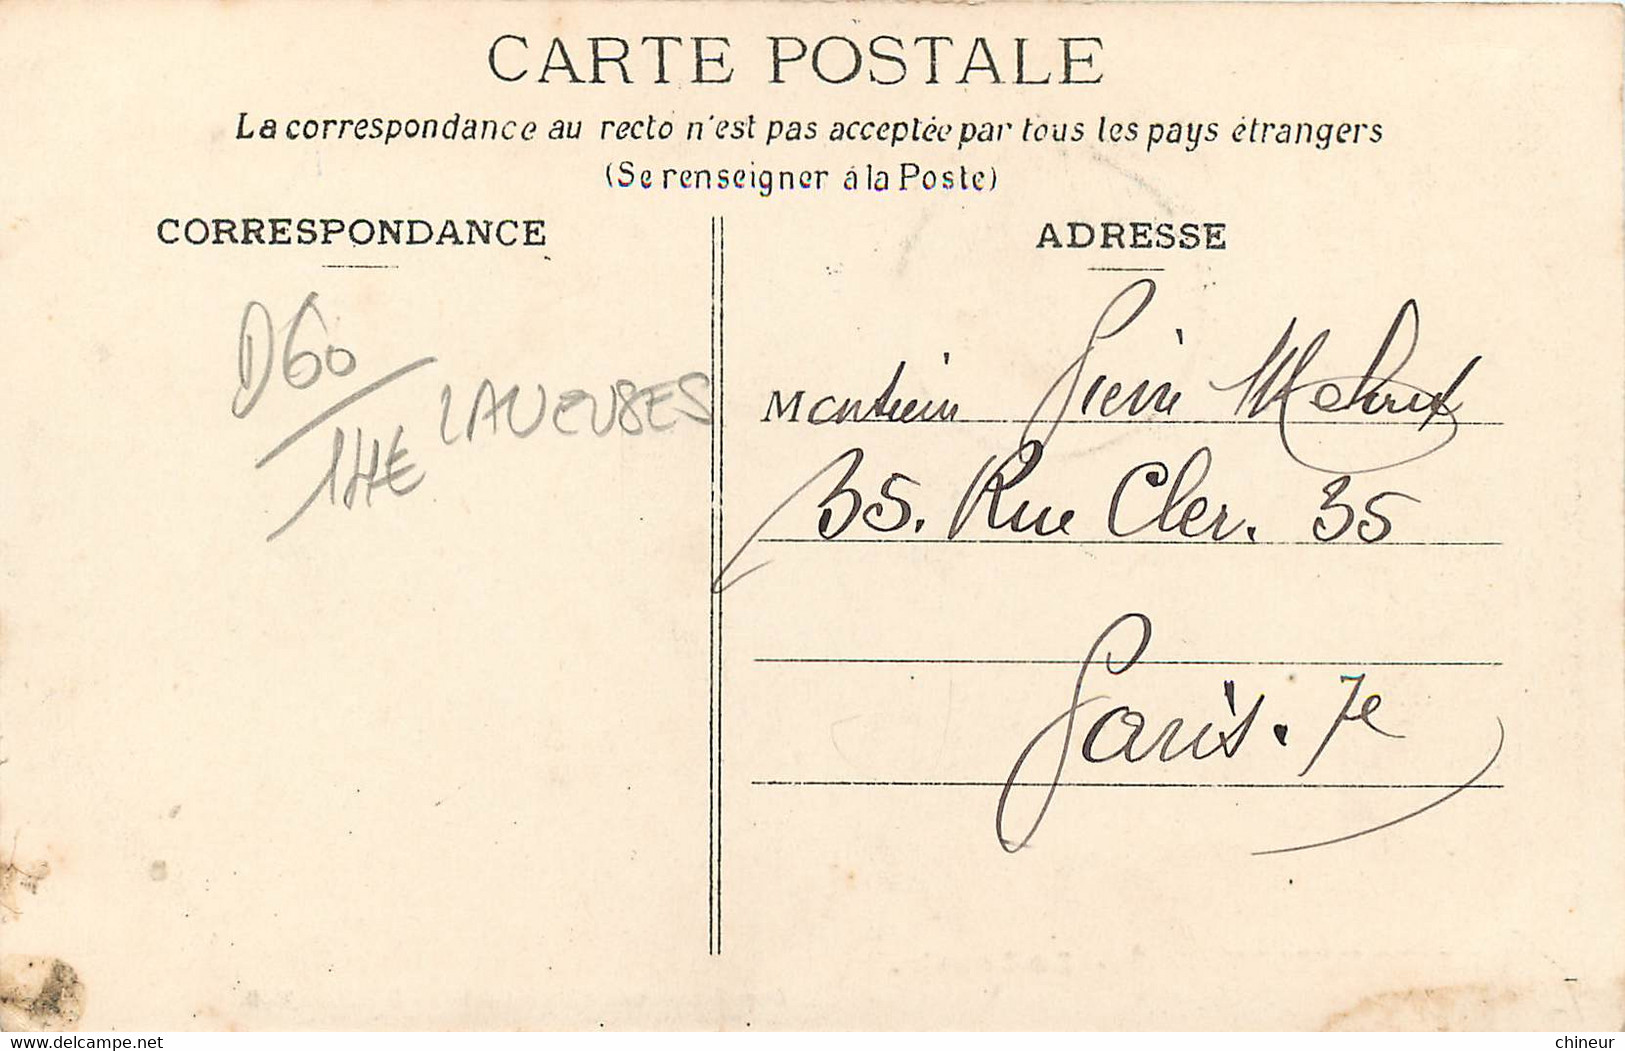 CARTE POSTALE
La correspondance au recto n'est pas acceptée par tous les pays étrangers
(Se renseigner à la Poste)
CORRESPONDANCE
ADRESSE
D60
14€ LAVEUSES
Monsieur Pierre
35. Rue Cler. 35
Paris. 7e
delcampe.net
chineur